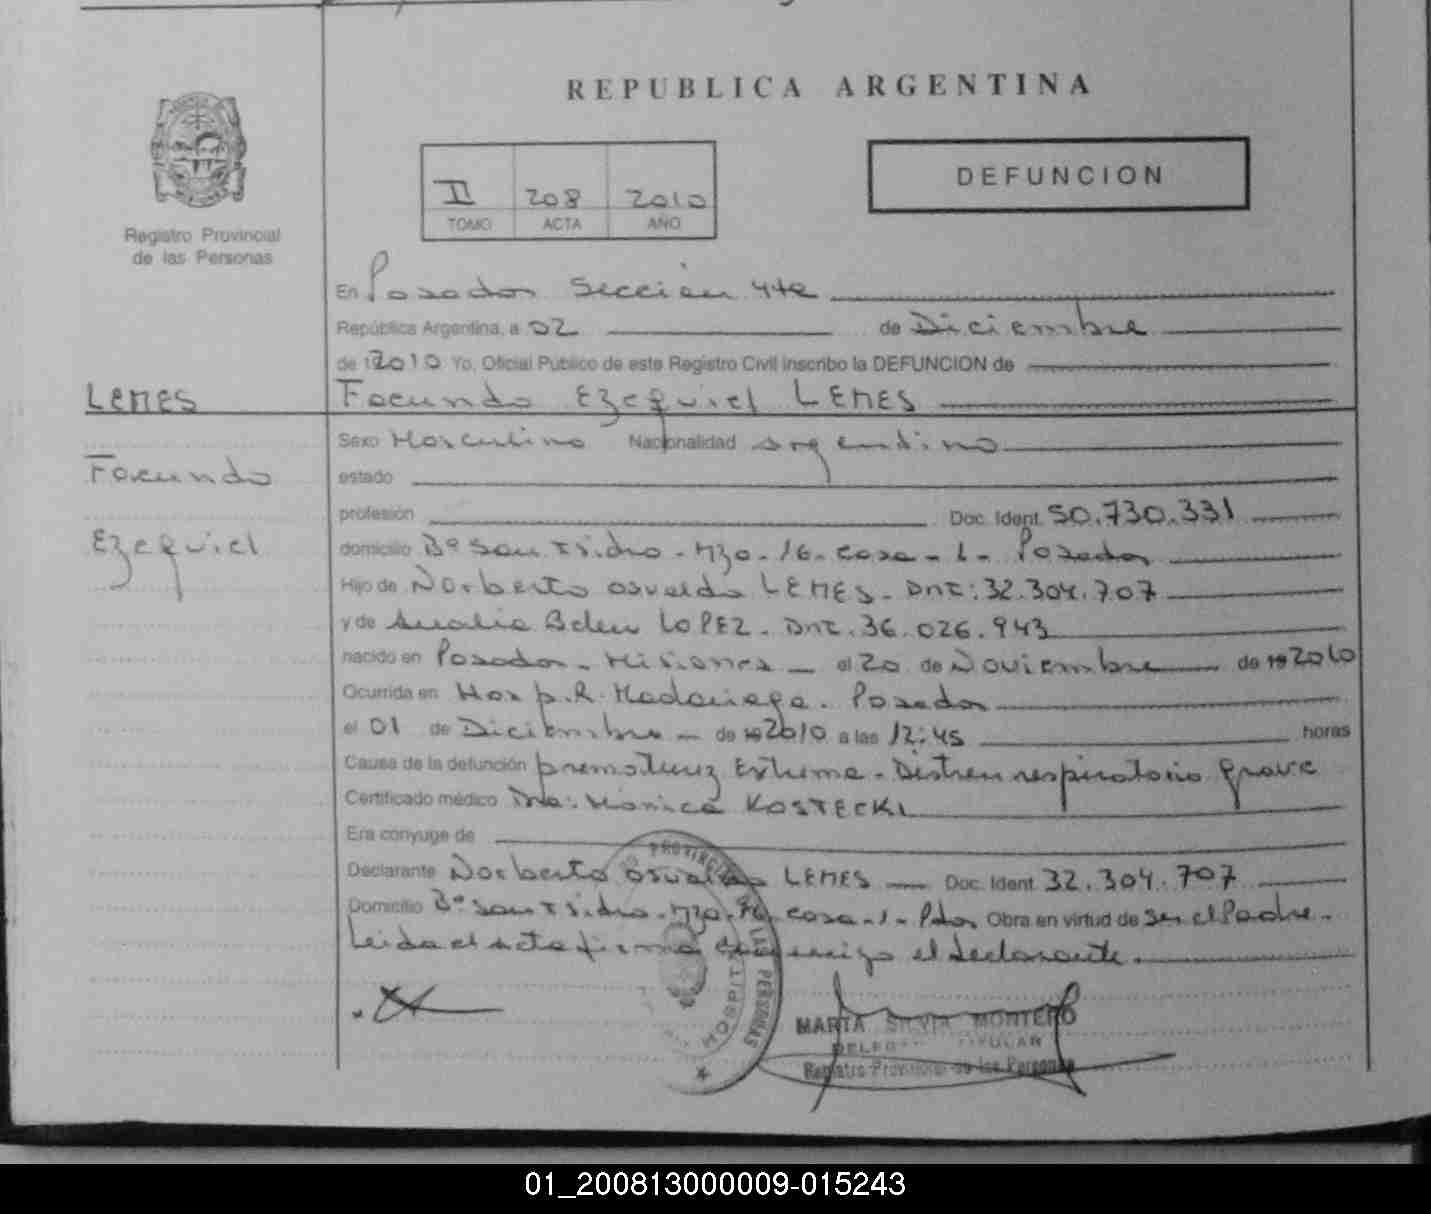 REPUBLICA ARGENTINA
II 208 2010
TOMO ACTA AÑO
DEFUNCION
Registro Provincial
de las Personas
En Posadas Sección 4ta
República Argentina, a 02 de Diciembre
de 2010 Yo, Oficial Público de este Registro Civil inscribo la DEFUNCION de
LEMES
Facundo Ezequiel LEMES
Sexo Masculino Nacionalidad argentino
Facundo
estado
profesión Doc. Ident. 50.730.331
Ezequiel
domicilio Bº San Isidro - Mza - 16 - casa - 1 - Posadas
Hijo de Norberto Osvaldo LEMES - DNI: 32.304.707
y de Analia Belen LOPEZ - DNI. 36.026.943
nacido en Posadas - Misiones - el 20 de Noviembre de 19 2010
Ocurrida en Hosp. R. Madariaga. Posadas
el 01 de Diciembre de 19 2010 a las 12:45 horas
Causa de la defunción prematurez Extrema - Distres respiratorio grave
Certificado médico Dra: Monica KOSTECKI
Era conyuge de
Declarante Norberto Osvaldo LEMES Doc. Ident. 32.304.707
Domicilio Bº San Isidro - Mza. 16 - casa - 1 - Pdas Obra en virtud de ser el Padre.
Leida el acta firma conmigo el declarante.
PROVINCIAL DE LAS PERSONAS
MARTA SILVIA MONTERO
DELEGADA TITULAR
Registro Provincial de las Personas
01_200813000009-015243